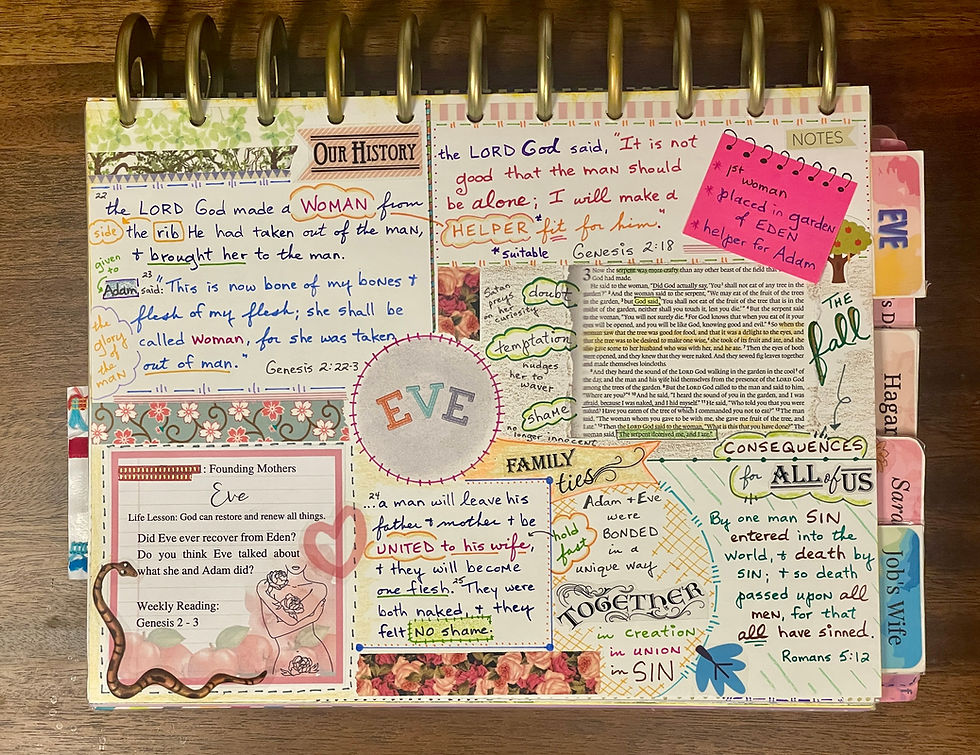 OUR HISTORY
22
the LORD God made a WOMAN from
side the rib He had taken out of the man,
& brought her to the man.
given
to
Adam
23
said: "This is now bone of my bones &
flesh of my flesh; she shall be
called Woman, for she was taken
out of man."
Genesis 2:22-3
the
glory
of the
man
the LORD God said, "It is not
good that the man should
be alone; I will make a
HELPER fit for him."
*suitable
Genesis 2:18
NOTES
* 1st
woman
* placed in garden
of EDEN
* helper for Adam
EVE
Satan
preys
on
curiosity
doubt
temptation
nudges
her to
waver
shame
no longer innocent
3 Now the serpent was more crafty than any other beast of the field that
He said to the woman, "Did God actually say, 'You shall not eat of any tree in the
garden'?" And the woman said to the serpent, "We may eat of the fruit of the trees
in the garden, but God said, 'You shall not eat of the fruit of the tree that is in the
midst of the garden, neither shall you touch it, lest you die.'" But the serpent said
to the woman, "You will not surely die. For God knows that when you eat of it your
eyes will be opened, and you will be like God, knowing good and evil." So when the
woman saw that the tree was good for food, and that it was a delight to the eyes, and
that the tree was to be desired to make one wise, she took of its fruit and ate, and she
also gave some to her husband who was with her, and he ate. Then the eyes of both
were opened, and they knew that they were naked. And they sewed fig leaves together
and made themselves loincloths.
And they heard the sound of the LORD God walking in the garden in the cool of
the day, and the man and his wife hid themselves from the presence of the LORD God
among the trees of the garden. But the LORD God called to the man and said to him,
"Where are you?" And he said, "I heard the sound of you in the garden, and I was
afraid, because I was naked, and I hid myself." He said, "Who told you that you were
naked? Have you eaten of the tree of which I commanded you not to eat?" The man
said, "The woman whom you gave to be with me, she gave me fruit of the tree, and
I ate." Then the LORD God said to the woman, "What is this that you have done?" The
woman said, "The serpent deceived me, and I ate."
THE
fall
CONSEQUENCES
for ALL of US
By one man SIN
entered into the
world, & death by
SIN; & so death
passed upon all
men, for that
all have sinned.
Romans 5:12
EVE
FAMILY
ties
24
...a man will leave his
father & mother & be
UNITED to his wife,
& they will become
one flesh. 25 They were
both naked, & they
felt NO shame.
hold
fast
Adam & Eve
were
BONDED
in a
unique way
TOGETHER
in creation
in union
in SIN
: Founding Mothers
Eve
Life Lesson: God can restore and renew all things.
Did Eve ever recover from Eden?
Do you think Eve talked about
what she and Adam did?
Weekly Reading:
Genesis 2 - 3
Hagar
Sara
Job's Wife